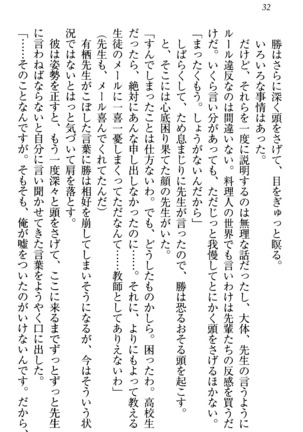 32
勝はさらに深く頭をさげて、目をぎゅっと瞑る。
いろいろな事情はあった。
だけど、それらを一度に説明するのは無理な話だったし、大体、先生の言うように
ルール違反なのは間違いない。料理人の世界でも言いわけは先輩たちの反感を買うだ
けだ。いくら言い分があっても、ただじっと我慢してとにかく頭をさげるほかない。
「まったくもう。しょうがないんだから」
しばらくして、ため息まじりに先生が言ったので、勝は恐るおそる頭をあげた。す
ると、そこには心底困り果てた顔の先生がいた。
「すんでしまったことは仕方ないわ。でも、どうしたものかしら。困ったわ。高校生
だったら、絶対にあんな申し出しなかったのに……。それに、よりにもよって教える
生徒のメールに一喜一憂しまくってただなんて……教師としてありえないわ」
(先生も、メール喜んでくれてたんだ)
有栖先生がこぼした言葉に勝は相好を崩してしまうものの、今はそういう状
況ではないとはっと気づいて肩を落とす。
彼は姿勢を正すと、もう一度深々と頭をさげて、ここに来るまでずっとずっと先生
に言わねばならないと自分に言い聞かせてきた言葉をようやく口に出した。
「……そのことなんですが。そもそも、俺が嘘をついたのがいけないんです。だから、